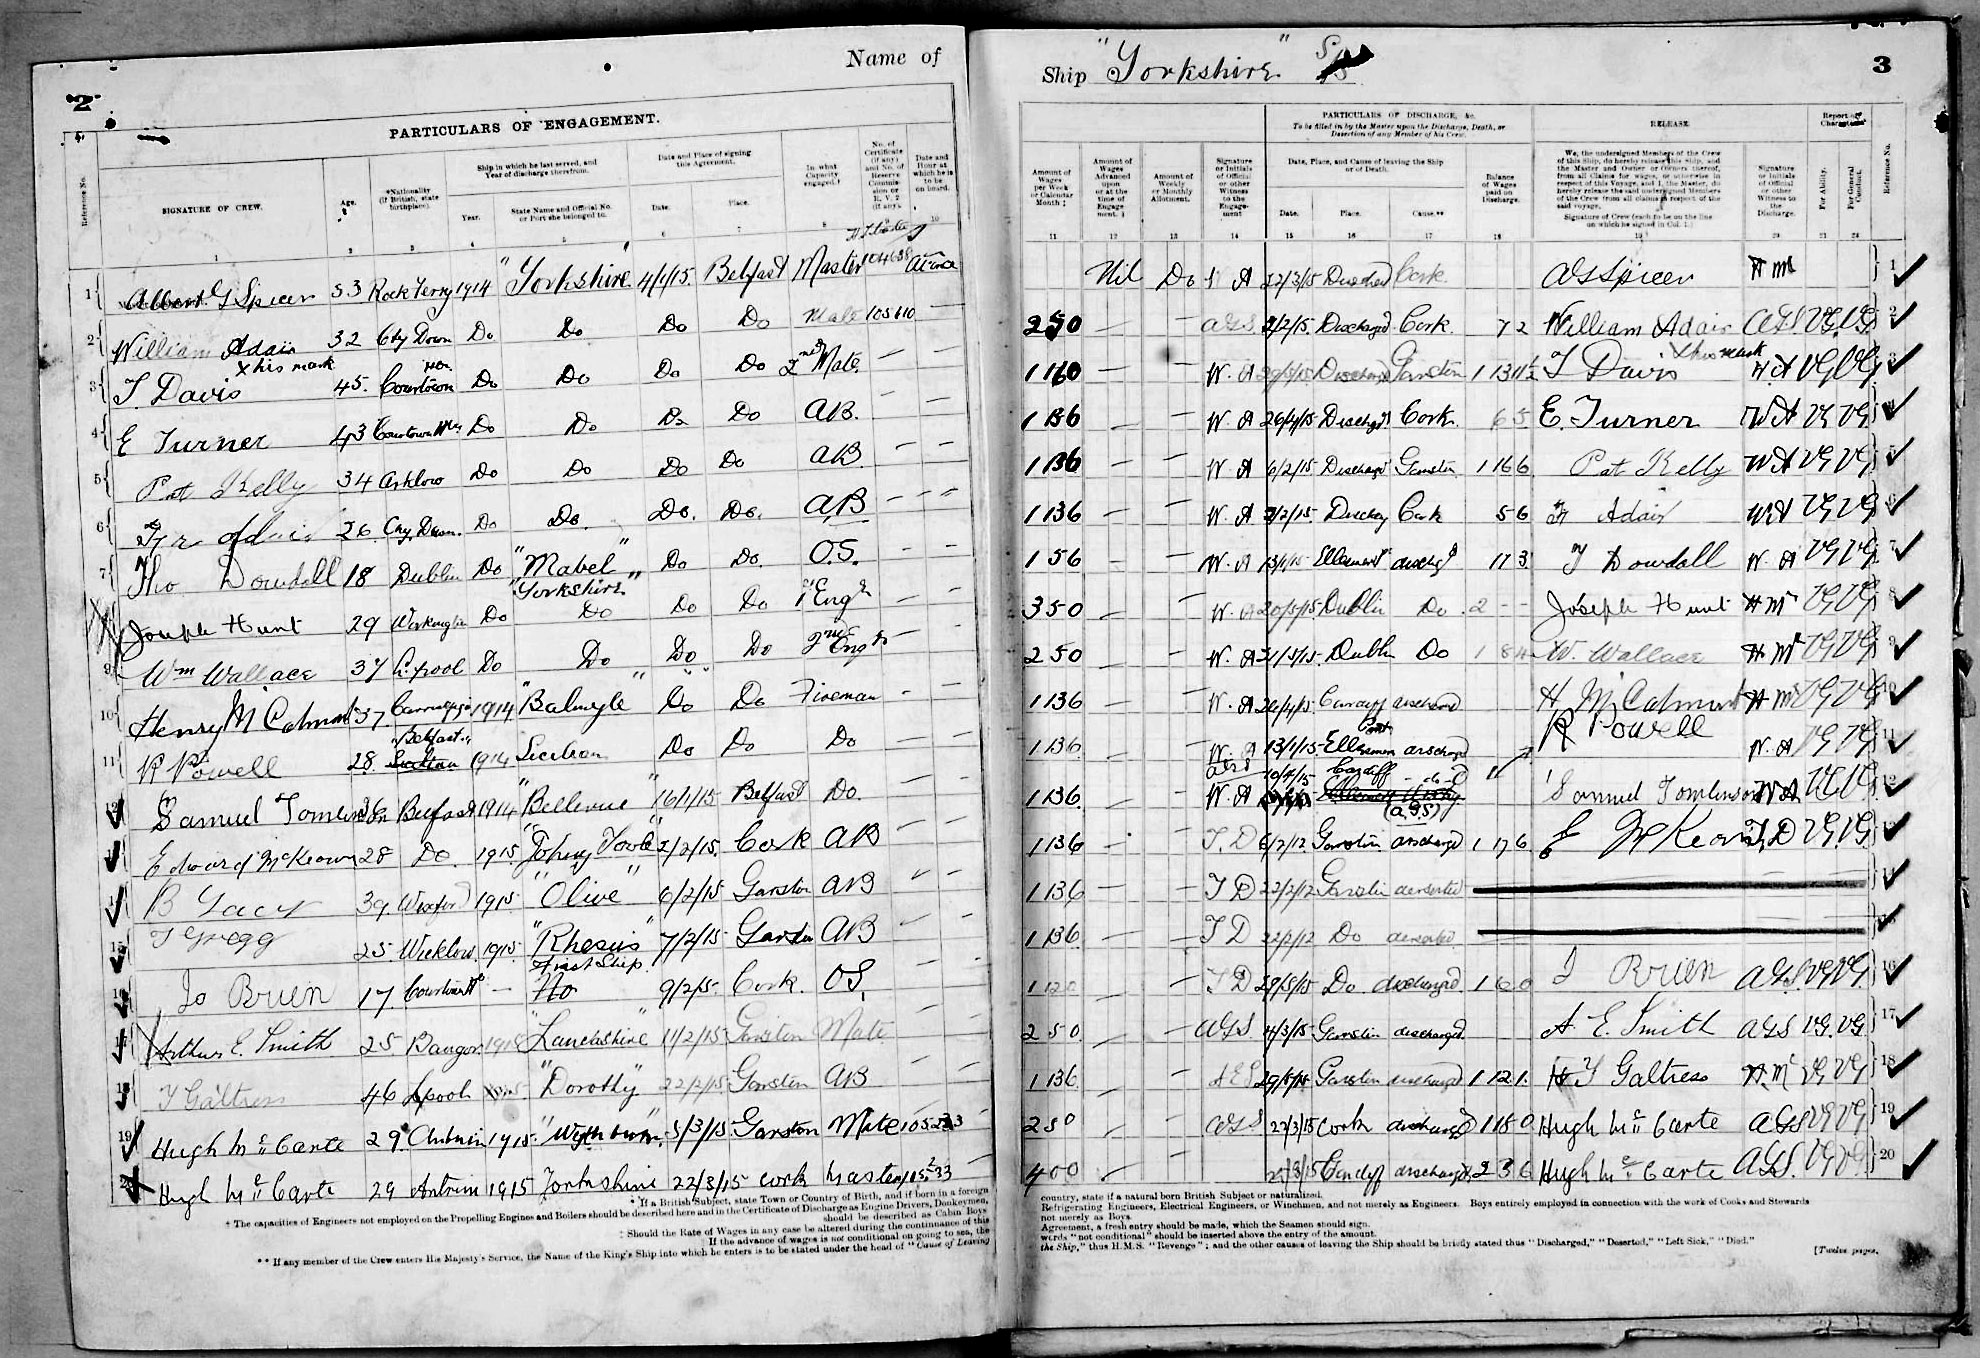 2
Name of
PARTICULARS OF ENGAGEMENT.
Reference No.
SIGNATURE OF CREW.
Age.
*Nationality (if British, state birthplace).
Ship in which he last served, and Year of discharge therefrom.
Year.
State Name and Official No. or Port she belonged to.
Date and Place of signing this Agreement.
Date.
Place.
In what Capacity engaged.†
No. of Certificate (if any) and No. of Reserve Commission or R.V.2 (if any).
Date and Hour at which he is to be on board.
1 2 3 4 5 6 7 8 10
1 Albert G Spicer 53 Rock Ferry 1914 "Yorkshire" 4/1/15. Belfast Master 104638 At once
2 William Adair 32 Cty Down Do Do Do Do Mate 105610
x his mark
3 T. Davis 45. Courtown Do Do Do Do 2nd Mate
4 E Turner 43 Courtown Do Do Do Do AB.
5 Pat Kelly 34 Arklow Do Do Do Do AB.
6 Adair 26 Cty Down. Do Do. Do. Do. AB
7 Tho Dowdall 18 Dublin Do "Mabel" Do Do. O.S.
"Yorkshire"
Joseph Hunt 29 Do Do Do Do 1st Engr
9 Wm Wallace 37 L'pool Do Do Do Do 2nd Engr
10 Henry McCalmont 37 1914 "Balmyle" Do Do Fireman
"Belfast"
11 R Powell 28 1914 Sicilian Do Do Do
12 Samuel Tomlinson Belfast 1914 "Bellevue" 6/1/15 Belfast Do.
Edward McKeown 28 Do. 1915 2/2/15. Cork AB
B Lacy 39 Wexford 1915 "Olive" 6/2/15 Garston AB
15 T Gregg 25 Wicklow 1915. "Rhesus" 7/2/15 Garston AB
First Ship
16 Jo Brien 17 No 9/2/15. Cork. OS.
17 Arthur E. Smith 25 Bangor "Lancashire" 11/2/15 Garston Mate
18 T Galtress 46 Lpool "Dorothy" 22/2/15 Garston AB
19 Hugh McCarte 29 Antrim 1915 5/3/15 Garston Mate 105233
20 Hugh McCarte 29 Antrim 1915 Yorkshire 22/3/15 Cork Master 105233
* If a British Subject, state Town or Country of Birth, and if born in a foreign
† The capacities of Engineers not employed on the Propelling Engines and Boilers should be described here and in the Certificate of Discharge as Engine Drivers, Donkeymen,
should be described as Cabin Boys
‡ Should the Rate of Wages in any case be altered during the continuance of this
If the advance of wages is not conditional on going to sea, the
** If any member of the Crew enters His Majesty's Service, the Name of the King's Ship into which he enters is to be stated under the head of "Cause of Leaving
Ship "Yorkshire" S/S
3
Amount of Wages per Week or Calendar Month ‡
Amount of Wages Advanced upon or at the time of Engagement. ‡
Amount of Weekly or Monthly Allotment.
Signature or Initials of Official or other Witness to the Engagement
PARTICULARS OF DISCHARGE, &c.
To be filled in by the Master upon the Discharge, Death, or Desertion of any Member of his Crew.
Date, Place, and Cause of leaving the Ship or of Death.
Date.
Place.
Cause.**
Balance of Wages paid on Discharge.
RELEASE.
We, the undersigned Members of the Crew of this Ship, do hereby release this Ship, and the Master and Owner or Owners thereof, from all Claims for wages, or otherwise in respect of this Voyage, and I, the Master, do hereby release the said undersigned Members of the Crew from all claims in respect of the said voyage.
Signature of Crew (each to be on the line on which he signed in Col. 1.)
Signature or Initials of Official or other Witness to the Discharge.
Report of Character.
For Ability.
For General Conduct.
Reference No.
11 12 13 14 15 16 17 18 19 20 21 22
Nil Do 22/3/15 Cork. AGSpicer 1
2 5 0 AGS 2/2/15. Discharged Cork 7 2 William Adair AGS VG VG 2
x his mark
1 16 0 W. A Discharged Garston 1 13 11½ T Davis VG VG 3
1 13 6 W. A 26/4/15 Discharged Cork. 6 5 E. Turner WA VG VG
1 13 6 W A 6/2/15 Discharged Garston 1 16 6 Pat Kelly WA VG VG 5
1 13 6 W. A 2/2/15. Cork 5 6 Adair WA VG VG 6
1 5 6 W. A 13/1/15 17 3 T Dowdall W. A VG VG 7
3 5 0 W. A 20/5/15 Dublin Do 2 - - Joseph Hunt VG VG 8
2 5 0 W. A 31/5/15 Dublin Do W. Wallace VG VG 9
1 13 6 W. A Cardiff discharged H McCalmont VG VG 10
1 13 6 W. A 13/1/15 discharged R Powell W. A VG VG 11
AGS Cardiff do
1 13 6 W. A (AGS) Samuel Tomlinson WA VG VG 12
1 13 6 T. D 6/2/12 Garston discharged 1 17 6 E McKeown TD VG VG 13
1 13 6 T D 22/2/12 Garston deserted
1 13 6 T D 22/2/12 Do deserted
T D 29/5/15 Do discharged J Brien AGS VG VG 16
2 5 0 AGS 4/3/15 Garston discharged. A. E. Smith AGS VG VG 17
1 13 6 29/5/15 Garston discharged 1 12 1 T Galtress VG VG 18
2 5 0 AGS 22/3/15 Cork discharged 1 15 0 Hugh McCarte AGS VG VG 19
4 0 0 Cardiff discharged 2 3 6 Hugh McCarte AGS VG VG 20
country, state if a natural born British Subject or naturalized.
Refrigerating Engineers, Electrical Engineers, or Winchmen, and not merely as Engineers. Boys entirely employed in connection with the work of Cooks and Stewards
not merely as Boys.
Agreement, a fresh entry should be made, which the Seamen should sign.
words "not conditional" should be inserted above the entry of the amount.
the Ship," thus H.M.S. "Revenge"; and the other causes of leaving the Ship should be briefly stated thus "Discharged," "Deserted," "Left Sick," "Died."
[Twelve pages.